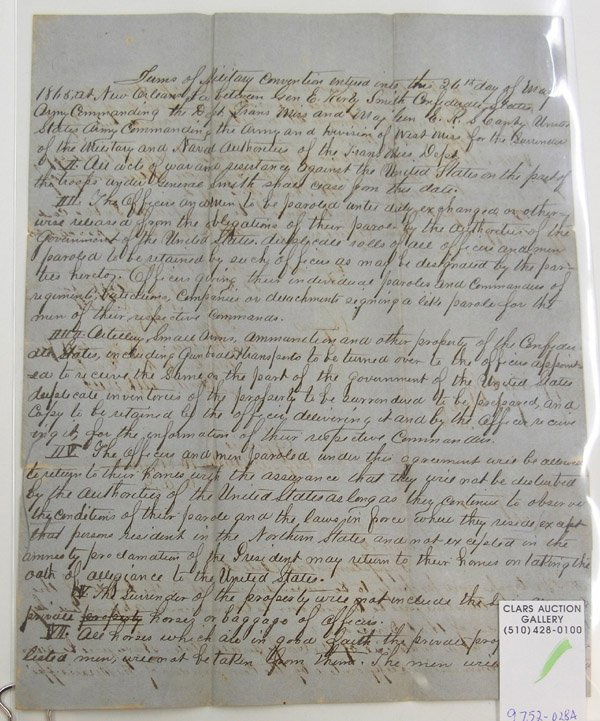 Terms of Military Convention entered into this 26th day of May
1865, at New Orleans La between Gen E. Kirby Smith Confederate States
Army Commanding the Dept Trans Miss and Maj Gen E. R. S Canby United
States Army Commanding the Army and Division of West Miss for the Surrender
of the Military and Naval Authorities of the Trans Miss Dept
All acts of war and resistance against the United States on the part of
the troops under General Smith shall cease from this date.
The Officers and men to be paroled until duly exchanged or other-
wise released from the obligations of their parole by the Authorities of the
Government of the United States duplicate rolls of all officers and men
paroled to be retained by such officers as may be designated by the par-
ties hereto. Officers giving their individual paroles and Commanders of
regiments, Batteries, Companies or detachments signing a like parole for the
men of their respective Commands.
Artillery, Small Arms, Ammunition and other property of the Confeder-
ate States, including Gunboats & transports to be turned over to the officers appoint-
ed to receive the Same on the part of the government of the United States
duplicate inventories of the property to be surrendered to be prepared, one
Copy to be retained by the officer delivering it and by the Officer receiv-
ing it, for the information of their respective Commanders.
The Officers and men paroled under this agreement will be allowed
to return to their homes with the assurance that they will not be disturbed
by the Authorities of the United States as long as they continue to observe
the conditions of their parole and the laws in force where they reside, except
that persons resident in the Northern States and not excepted in the
amnesty proclamation of the President may return to their homes on taking the
oath of allegiance to the United States.
V The Surrender of the property will not include the
private property horses or baggage of officers.
VI All horses which are in good faith the private prop
listed men, will not be taken from them. The men will
CLARS AUCTION
GALLERY
(510) 428-0100
9752-028A